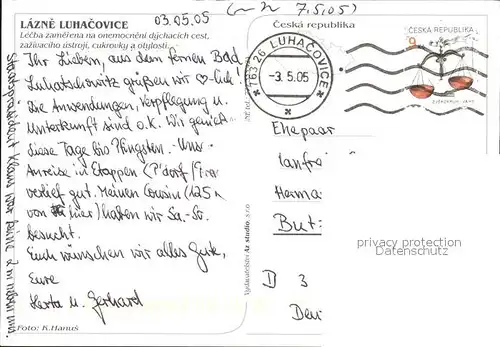 03.05.05
7.5.05)
LÁZNĚ LUHAČOVICE
Léčba zaměřena na onemocnění dýchacích cest,
zažívacího ústrojí, cukrovky a otylosti.
Česká republika
ČESKÁ REPUBLIKA
9
763 26 LUHAČOVICE 1
-3.5.05
Ihr Lieben, aus dem fernen Bad
Luhatschowitz grüßen wir ♡-lich!
Die Anwendungen, Verpflegung u.
Unterkunft sind o.k. Wir genieß.
diese Tage bis Pfingsten. Uns.
Anreise in Etappen (P'dorf/
verlief gut. Meinen Cousin (125 k
von hier) haben wir Sa.-So.
besucht.
Euch wünschen wir alles Gute,
Eure
Herta u. Gerhard
Ehepaar
Manfre
Herma
But
D 3
Deu
Vydavatelství Az studio, s.r.o
Foto: K.Hanuš
privacy protection
Datenschutz